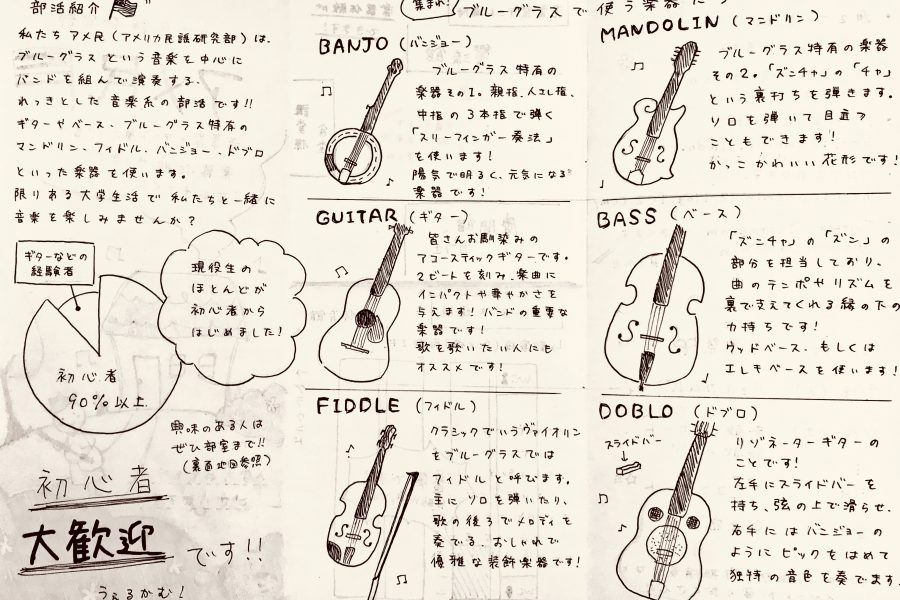 部活紹介
私たち アメ民(アメリカ民謡研究部)は、
ブルーグラス という音楽を中心に
バンドを組んで演奏する、
れっきとした 音楽系の部活です!!
ギターやベース、ブルーグラス特有の
マンドリン、フィドル、バンジョー、ドブロ
といった楽器を使います。
限りある大学生活で 私たちと一緒に
音楽を楽しみませんか?
ギターなどの
経験者
初心者
90%以上
現役生の
ほとんどが
初心者から
はじめました!
興味のある人は
ぜひ部室まで!!
(裏面地図参照)
初心者
大歓迎 です!!
うぇるかむ!
集まれ!
ブルーグラスで 使う楽器たち
BANJO (バンジョー)
ブルーグラス特有の
楽器その1。親指、人さし指、
中指の3本指で弾く
「スリーフィンガー奏法」
を使います!
陽気で明るく、元気になる
楽器です!
GUITAR (ギター)
皆さんお馴染みの
アコースティックギターです。
2ビートを刻み、楽曲に
インパクトや華やかさを
与えます!バンドの重要な
楽器です!
歌を歌いたい人にも
オススメです!
FIDDLE (フィドル)
クラシックでいうヴァイオリン
をブルーグラスでは
フィドルと呼びます。
主にソロを弾いたり、
歌の後ろでメロディを
奏でる、おしゃれで
優雅な装飾楽器です!
MANDOLIN (マンドリン)
ブルーグラス特有の楽器
その2。「ズンチャ」の「チャ」
という裏打ちを弾きます。
ソロを弾いて目立つ
こともできます!
かっこかわいい花形です!
BASS (ベース)
「ズンチャ」の「ズン」の
部分を担当しており、
曲のテンポやリズムを
裏で支えてくれる縁の下の
力持ちです!
ウッドベース、もしくは
エレキベースを使います!
DOBLO (ドブロ)
スライドバー
リゾネーターギターの
ことです!
左手にスライドバーを
持ち、弦の上で滑らせ、
右手にはバンジョーの
ようにピックをはめて
独特の音色を奏でます。